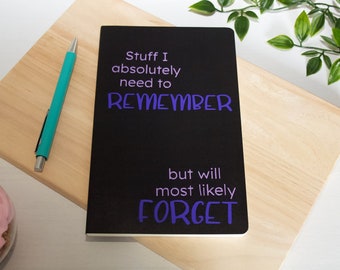 Stuff I
absolutely
need to
REMEMBER
but will
most likely
FORGET